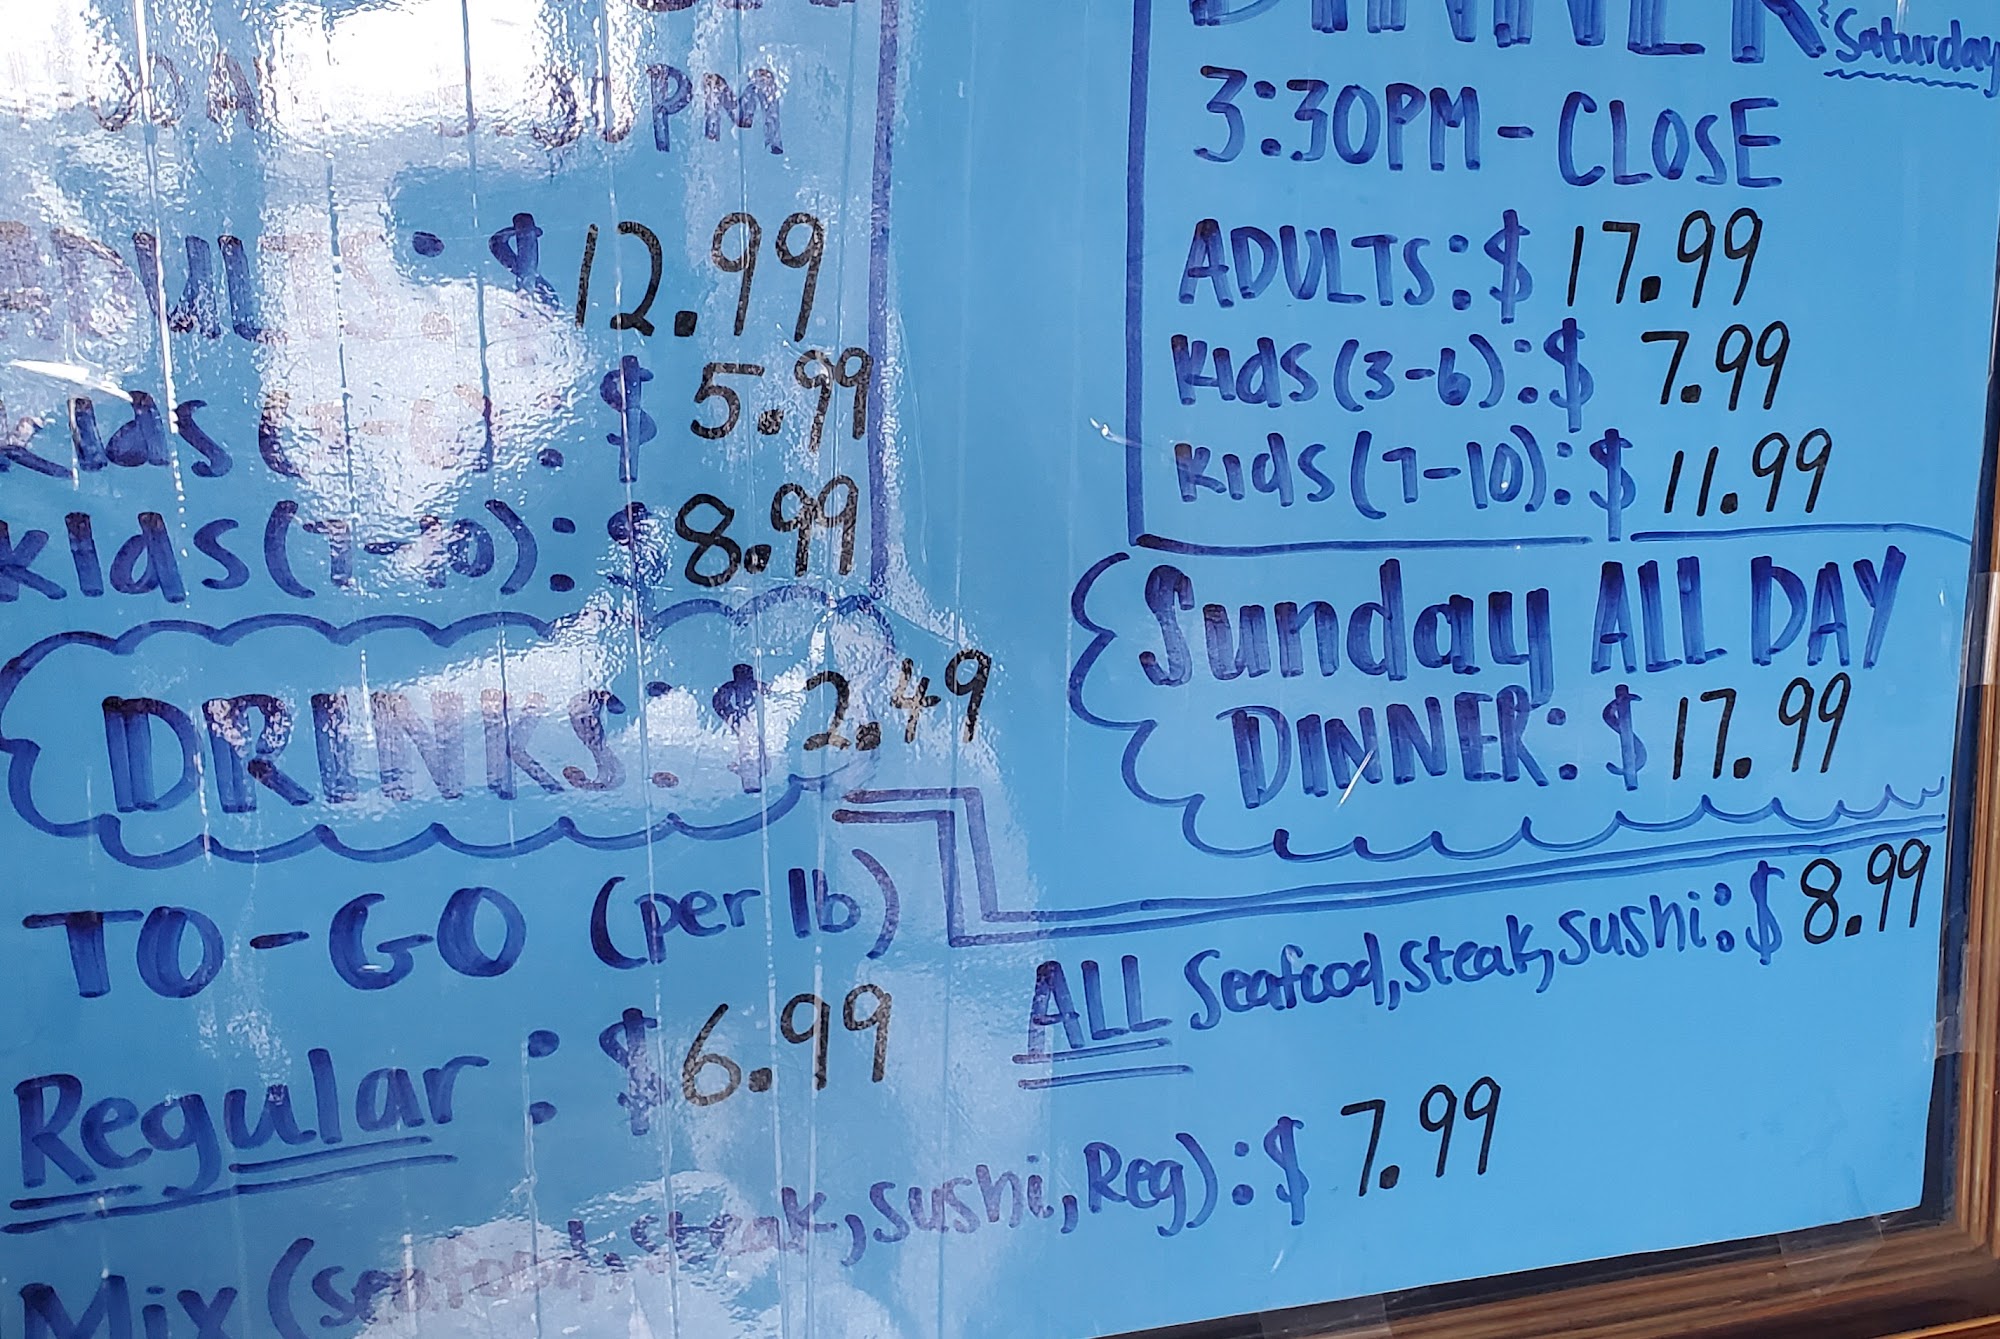 PM
ADULTS: $12.99
Kids ( : $5.99
Kids (7-10): $8.99
DRINKS: $2.49
DINNER
Saturday
3:30PM - CLOSE
ADULTS: $17.99
Kids (3-6): $7.99
Kids (7-10): $11.99
Sunday ALL DAY
DINNER: $17.99
TO-GO (per lb)
Regular: $6.99
ALL Seafood, Steak, Sushi: $8.99
Mix (seafood, steak, Sushi, Reg): $7.99